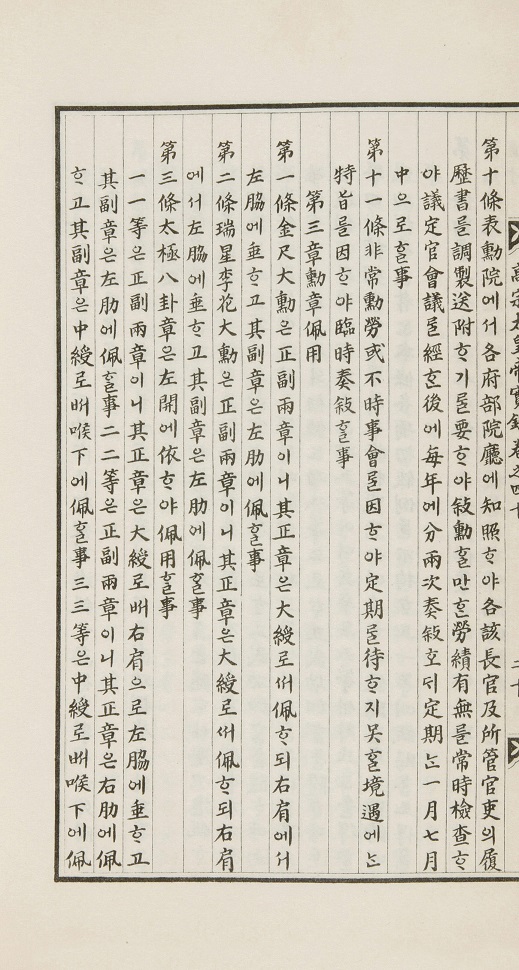 高宗太皇帝實錄卷之四十
二十
第十條表勳院에서各府部院廳에知照ᄒᆞ야各該長官及所管官吏의履
歷書를調製送附ᄒᆞ기ᄅᆞᆯ要ᄒᆞ야敍勳ᄒᆞᆯ만ᄒᆞᆫ勞績有無를常時檢查ᄒᆞ
야議定官會議ᄅᆞᆯ經ᄒᆞᆫ後에每年에分兩次奏敍호ᄃᆡ定期ᄂᆞᆫ一月七月
中으로ᄒᆞᆯ事
第十一條非常勳勞或不時事會ᄅᆞᆯ因ᄒᆞ야定期ᄅᆞᆯ待ᄒᆞ지못ᄒᆞᆯ境遇에ᄂᆞᆫ
特旨를因ᄒᆞ야臨時奏敍ᄒᆞᆯ事
第三章勳章佩用
第一條金尺大勳은正副兩章이니其正章은大綬로ᄡᅥ佩ᄒᆞ되右肩에서
左脇에垂ᄒᆞ고其副章은左肋에佩ᄒᆞᆯ事
第二條瑞星李花大勳은正副兩章이니其正章은大綬로ᄡᅥ佩ᄒᆞ되右肩
에서左脇에垂ᄒᆞ고其副章은左肋에佩ᄒᆞᆯ事
第三條太極八卦章은左開에依ᄒᆞ야佩用ᄒᆞᆯ事
一一等은正副兩章이니其正章은大綬로ᄡᅥ右肩으로左脇에垂ᄒᆞ고
其副章은左肋에佩ᄒᆞᆯ事二二等은正副兩章이니其正章은右肋에佩
ᄒᆞ고其副章은中綬로ᄡᅥ喉下에佩ᄒᆞᆯ事三三等은中綬로ᄡᅥ喉下에佩